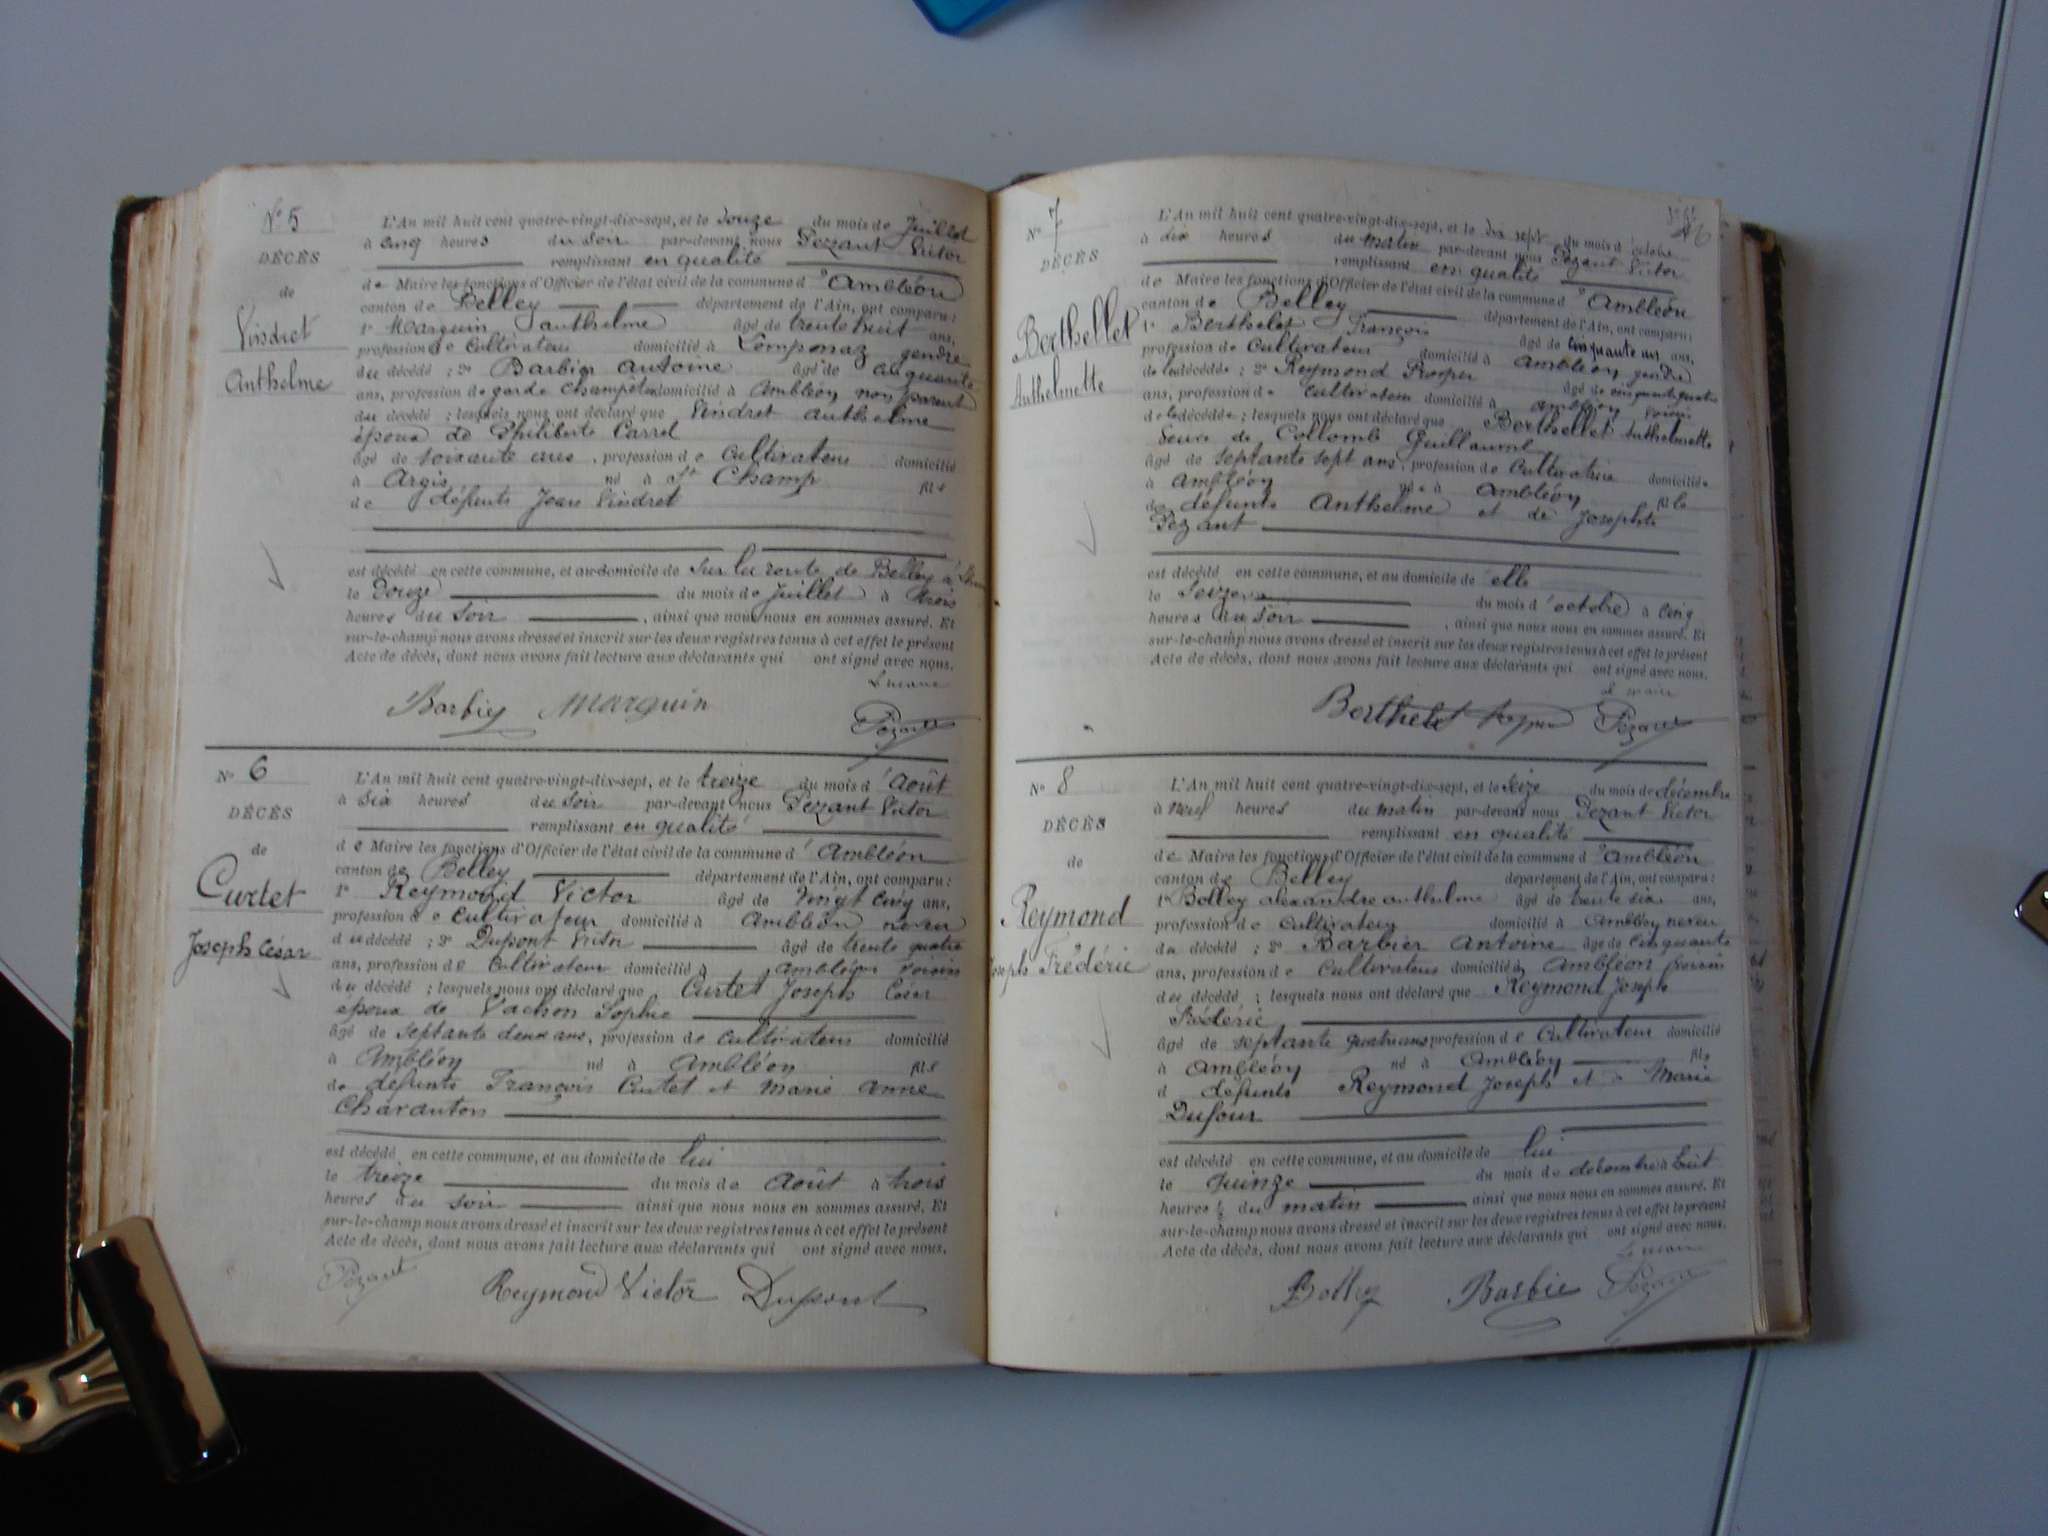 N° 5
DÉCÈS
de
Vindret
Anthelme
L'An mil huit cent quatre-vingt-dix-sept, et le douze du mois de Juillet
à cinq heures du soir par-devant nous Pezant Victor
remplissant en qualité
de Maire les fonctions d'Officier de l'état civil de la commune d'Ambléon
canton de Belley département de l'Ain, ont comparu:
1° Marquin anthelme âgé de trente huit ans,
profession de cultivateur domicilié à Lompnaz gendre
du décédé ; 2° Barbier antoine âgé de cinquante
ans, profession de garde champêtre domicilié à Ambléon non parent
du décédé ; lesquels nous ont déclaré que Vindret anthelme
époux de Philiberte Carrel
âgé de soixante ans, profession de cultivateur domicilié
à Argis né à St Champ fils
de défunts Jean Vindret
est décédé en cette commune, et au domicile de sur la route de Belley à
le Douze du mois de Juillet à trois
heures du soir, ainsi que nous nous en sommes assuré. Et
sur-le-champ nous avons dressé et inscrit sur les deux registres tenus à cet effet le présent
Acte de décès, dont nous avons fait lecture aux déclarants qui ont signé avec nous.
Le maire
Barbier Marquin Pezant
N° 6
DÉCÈS
de
Curtet
Joseph César
L'An mil huit cent quatre-vingt-dix-sept, et le treize du mois d'Août
à six heures du soir par-devant nous Pezant Victor
remplissant en qualité
de Maire les fonctions d'Officier de l'état civil de la commune d'Ambléon
canton de Belley département de l'Ain, ont comparu:
1° Reymond Victor âgé de vingt cinq ans,
profession de cultivateur domicilié à Ambléon neveu
du décédé ; 2° Dupont Victor âgé de trente quatre
ans, profession de cultivateur domicilié à Ambléon voisin
du décédé ; lesquels nous ont déclaré que Curtet Joseph César
époux de Vachon Sophie
âgé de septante deux ans, profession de cultivateur domicilié
à Ambléon né à Ambléon fils
de défunts François Curtet et Marie anne
Charanton
est décédé en cette commune, et au domicile de lui
le treize du mois de Août à trois
heures du soir ainsi que nous nous en sommes assuré. Et
sur-le-champ nous avons dressé et inscrit sur les deux registres tenus à cet effet le présent
Acte de décès, dont nous avons fait lecture aux déclarants qui ont signé avec nous.
Pezant Reymond Victor Dupont
N° 7
DÉCÈS
Berthellet
Anthelmette
L'An mil huit cent quatre-vingt-dix-sept, et le dix sept du mois d'octobre
à dix heures du matin par-devant nous Pezant Victor
remplissant en qualité
de Maire les fonctions d'Officier de l'état civil de la commune d'Ambléon
canton de Belley département de l'Ain, ont comparu:
1° Berthelet François âgé de cinquante un ans,
profession de cultivateur domicilié à Ambléon gendre
de la décédée ; 2° Reymond Prosper âgé de cinquante quatre
ans, profession de cultivateur domicilié à Ambléon voisin
de la décédée ; lesquels nous ont déclaré que Berthellet Anthelmette
veuve de Collomb Guillaume
âgé de septante sept ans, profession de cultivatrice domiciliée
à Ambléon née à Ambléon fille
de défunts Anthelme et de Josephte
Pezant
est décédé en cette commune, et au domicile de elle
le Seize du mois d'octobre à cinq
heures du soir, ainsi que nous nous en sommes assuré. Et
sur-le-champ nous avons dressé et inscrit sur les deux registres tenus à cet effet le présent
Acte de décès, dont nous avons fait lecture aux déclarants qui ont signé avec nous.
le maire
Berthelet Pezant
N° 8
DÉCÈS
de
Reymond
Joseph Frédéric
L'An mil huit cent quatre-vingt-dix-sept, et le seize du mois de décembre
à neuf heures du matin par-devant nous Pezant Victor
remplissant en qualité
de Maire les fonctions d'Officier de l'état civil de la commune d'Ambléon
canton de Belley département de l'Ain, ont comparu:
1° Bolley alexandre anthelme âgé de trente six ans,
profession de cultivateur domicilié à Ambléon neveu
du décédé ; 2° Barbier Antoine âgé de cinquante
ans, profession de cultivateur domicilié à Ambléon voisin
du décédé ; lesquels nous ont déclaré que Reymond Joseph
Frédéric
âgé de septante quatre ans profession de cultivateur domicilié
à Ambléon né à Ambléon fils
d défunts Reymond Joseph et Marie
Dufour
est décédé en cette commune, et au domicile de lui
le quinze du mois de décembre à huit
heures ½ du matin ainsi que nous nous en sommes assuré. Et
sur-le-champ nous avons dressé et inscrit sur les deux registres tenus à cet effet le présent
Acte de décès, dont nous avons fait lecture aux déclarants qui ont signé avec nous.
Le maire
Bolley Barbier Pezant